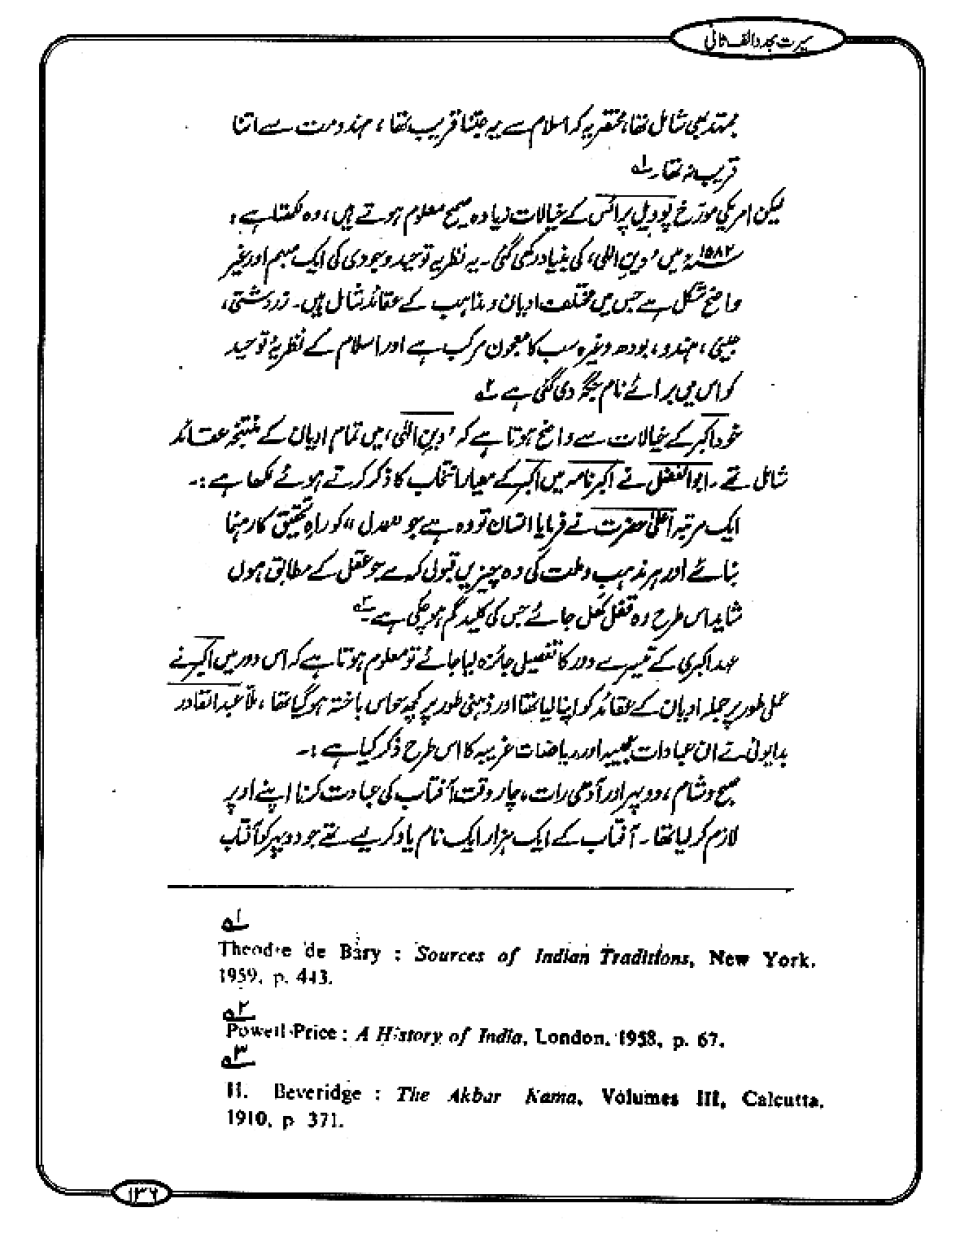 سیرت مجدد الف ثانی
بھی شامل تھا، مختصر یہ کہ اسلام سے یہ جتنا قریب تھا، ہندومت سے اتنا
قریب نہ تھا۔ ۱ـہ
لیکن امریکی مورّخ پوویل پرائس کے خیالات زیادہ صحیح معلوم ہوتے ہیں، وہ لکھتا ہے :
۱۵۸۲ء میں ’دینِ الٰہی‘ کی بنیاد رکھی گئی۔ یہ نظریہ توحیدِ وجودی کی ایک مبہم اور غیر
واضح شکل ہے جس میں مختلف ادیان و مذاہب کے عقائد شامل ہیں۔ زردشتی،
جینی، ہندو، بودھ وغیرہ سب کا معجون مرکب ہے اور اسلام کے نظریۂ توحید
کو اس میں برائے نام جگہ دی گئی ہے ۲ـہ
خود اکبر کے خیالات سے واضح ہوتا ہے کہ ’دینِ الٰہی‘ میں تمام ادیان کے منتخبہ عقائد
شامل تھے۔ ابوالفضل نے اکبر نامہ میں اکبر کے معیارِ انتخاب کا ذکر کرتے ہوئے لکھا ہے :۔
ایک مرتبہ اعلیٰ حضرت نے فرمایا انسان تو وہ ہے جو ’’عدل‘‘ کو راہِ تحقیق کا رہنما
بنائے اور ہر مذہب و ملت کی وہ چیزیں قبول کرے جو عقل کے مطابق ہوں
شاید اس طرح وہ قفل کھل جائے جس کی کلید گم ہو چکی ہے۔ ۳ـہ
عہدِ اکبری کے تیسرے دور کا تفصیلی جائزہ لیا جائے تو معلوم ہوتا ہے کہ اس دور میں اکبر نے
عملی طور پر جملہ ادیان کے عقائد کو اپنا لیا تھا اور ذہنی طور پر کچھ حواس باختہ ہو گیا تھا، ملّا عبدالقادر
بدایونی نے ان عبادات عجیبہ اور ریاضات غریبہ کا اس طرح ذکر کیا ہے :۔
صبح و شام، دوپہر اور آدھی رات، چار وقت آفتاب کی عبادت کرنا اپنے اوپر
لازم کر لیا تھا۔ آفتاب کے ایک ہزار ایک نام یاد کر لیے تھے جو دوپہر کو آفتاب
۱ـہ
Theodre de Bary : Sources of Indian Traditions, New York.
1959, p. 443.
۲ـہ
Powell-Price : A History of India, London, 1958, p. 67.
۳ـہ
H. Beveridge : The Akbar Nama, Volumes III, Calcutta.
1910, p 371.
۱۳۶